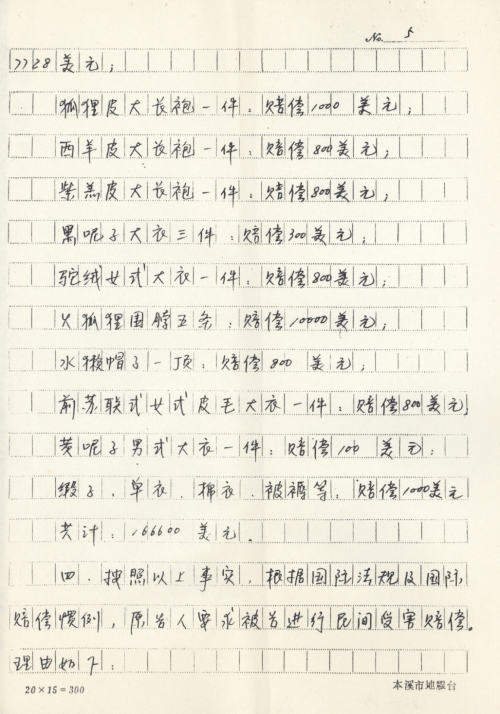 No. 5
7728美元；
狐狸皮大长袍一件：赔偿1000美元；
西羊皮大长袍一件：赔偿800美元；
紫羔皮大长袍一件：赔偿800美元；
黑呢子大衣三件：赔偿300美元；
驼绒女式大衣一件：赔偿800美元；
火狐狸围脖五条：赔偿10000美元；
水獭帽子一顶：赔偿800美元；
前苏联式女式皮毛大衣一件：赔偿800美元。
黄呢子男式大衣一件：赔偿100美元；
缎子．单衣．棉衣．被褥等：赔偿1000美元
共计：166600美元．
四．按照以上事实，根据国际法规及国际
赔偿惯例，原告人要求被告进行民间受害赔偿。
理由如下：
20×15＝300
本溪市地震台